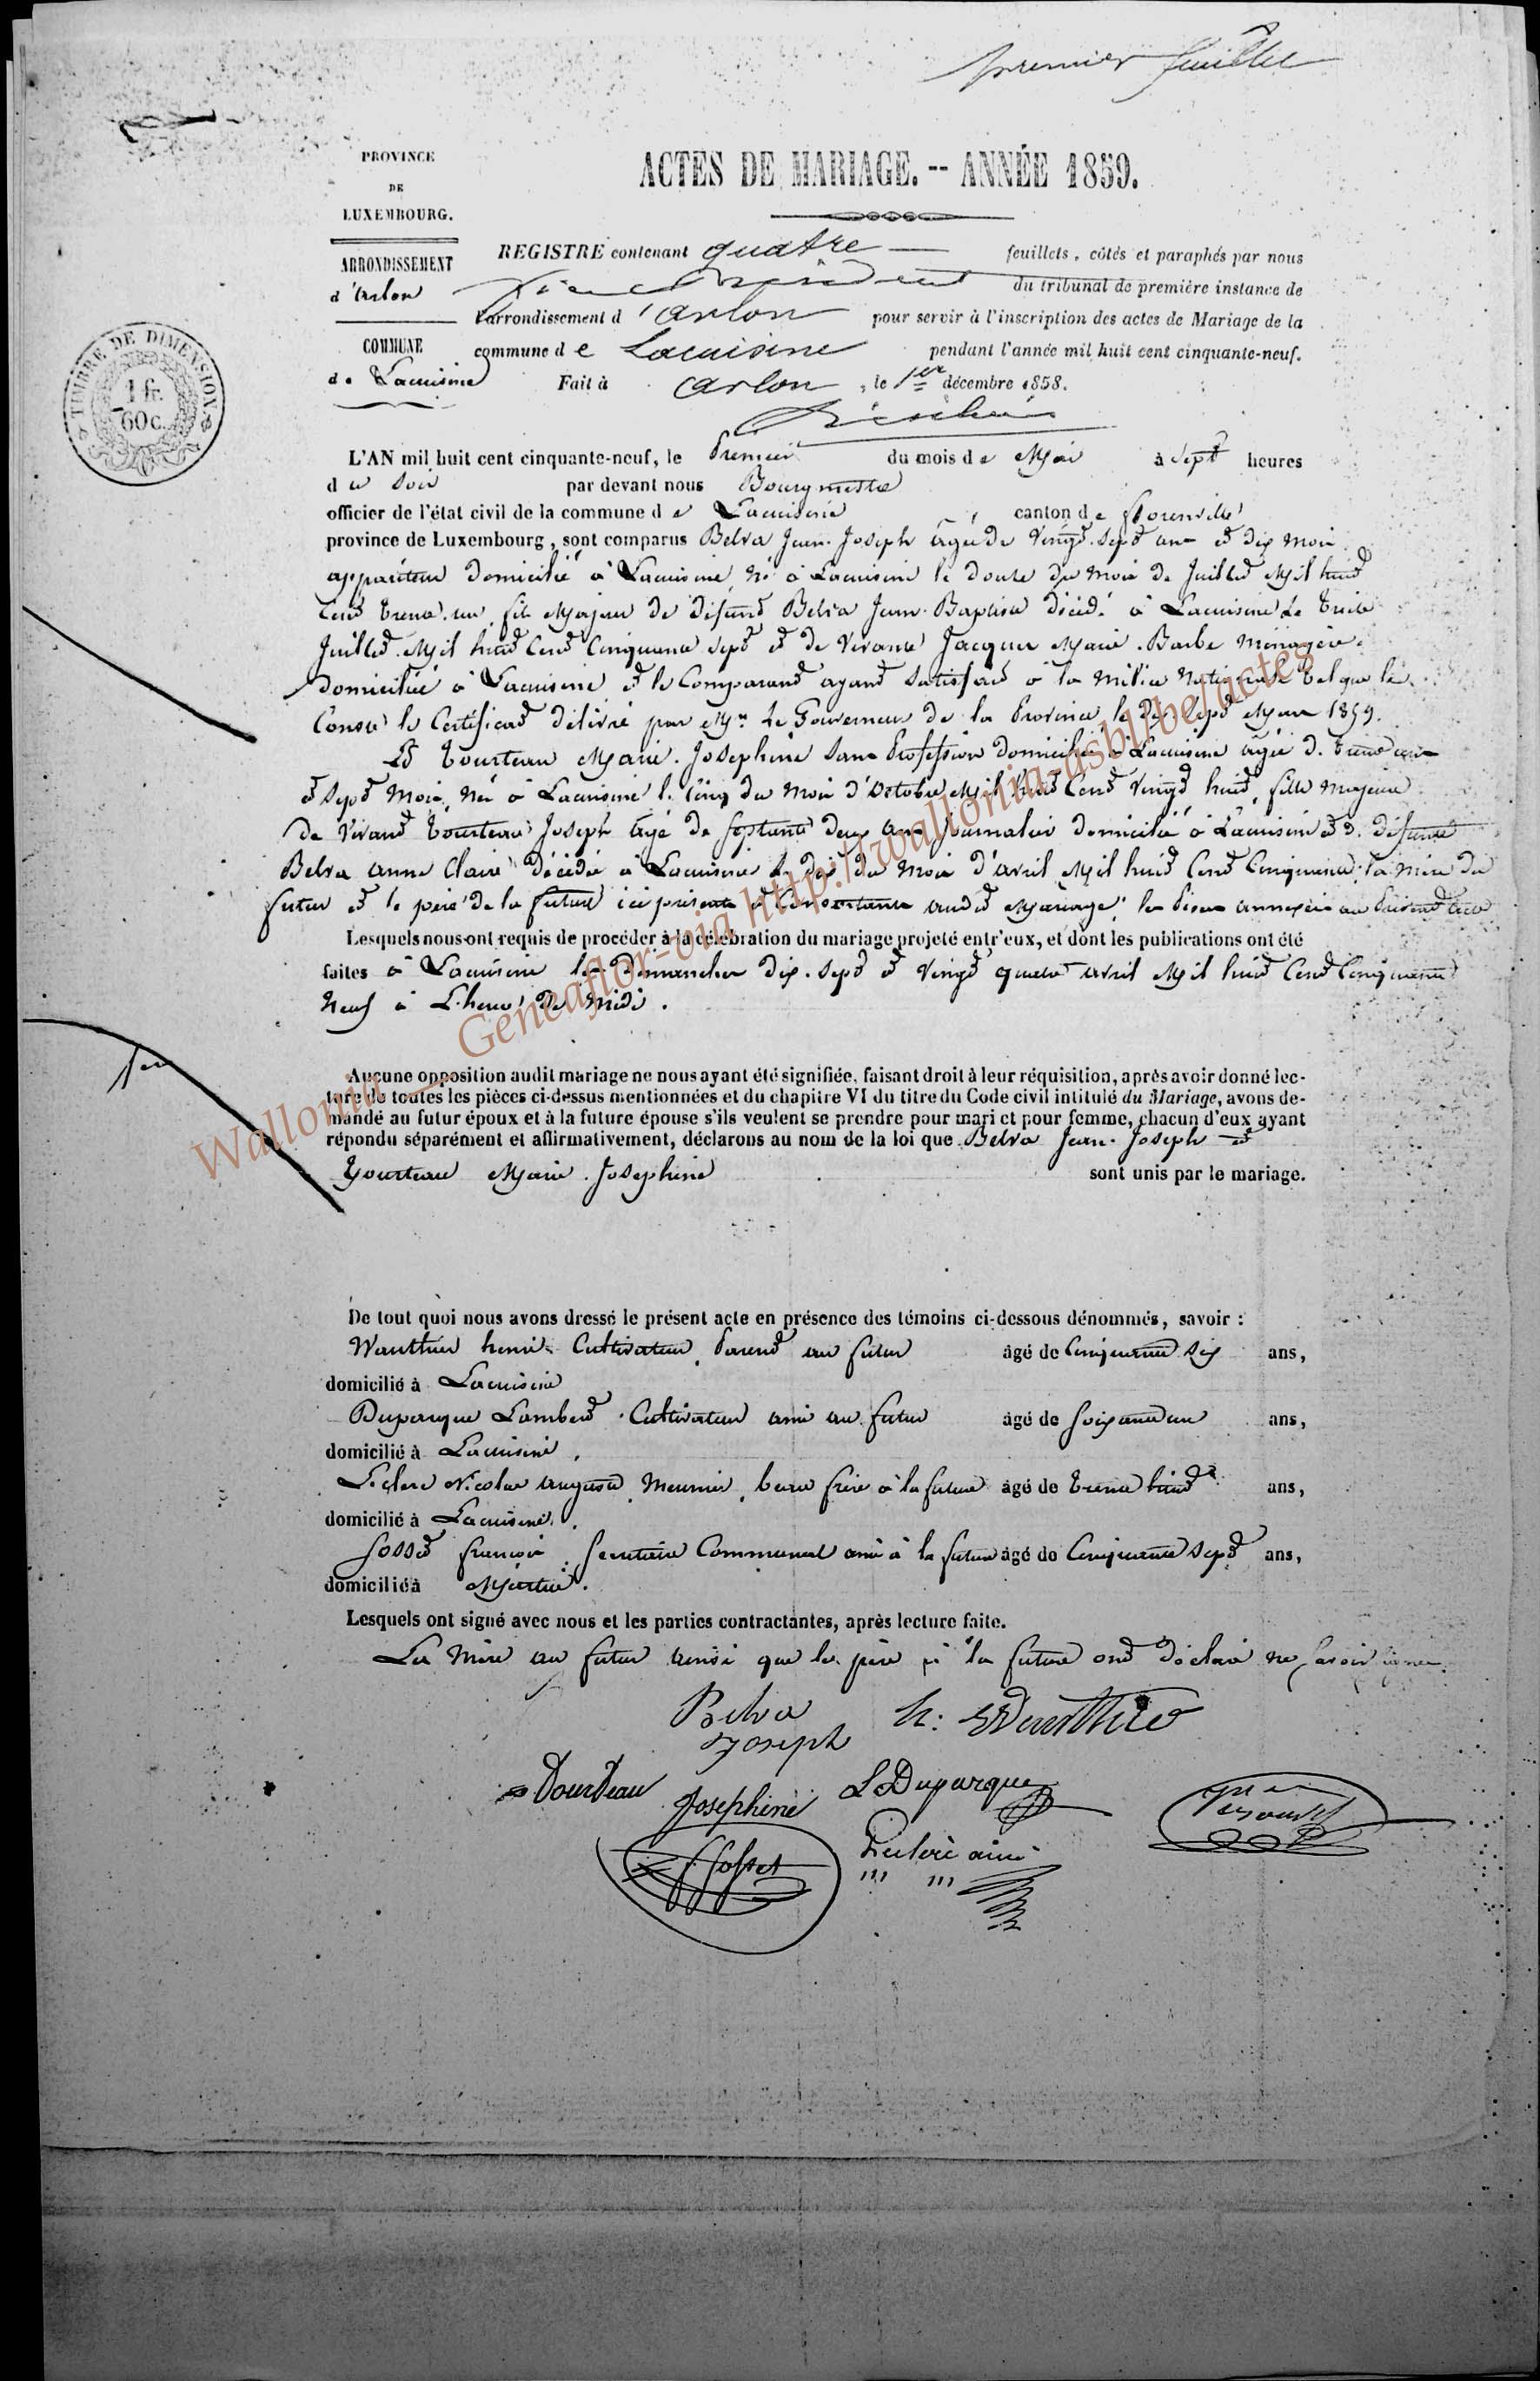 premier feuillet
PROVINCE
DE
LUXEMBOURG.
ARRONDISSEMENT
d'Arlon
COMMUNE
de Lacuisine
TIMBRE DE DIMENSION
1 fr.
60 c.
ACTES DE MARIAGE. -- ANNÉE 1859.
REGISTRE contenant quatre feuillets, côtés et paraphés par nous
président du tribunal de première instance de
l'arrondissement d'Arlon pour servir à l'inscription des actes de Mariage de la
commune de Lacuisine pendant l'année mil huit cent cinquante-neuf.
Fait à Arlon, le 1er décembre 1858.
L'AN mil huit cent cinquante-neuf, le Premier du mois de Mai à Sept heures
du Soir par devant nous Bourgmestre
officier de l'état civil de la commune de Lacuisine canton de florenville
province de Luxembourg, sont comparus Belva Jean-Joseph âgé de Vingt-Sept ans et dix mois
appariteur domicilié à Lacuisine né à Lacuisine le douze du mois de Juillet Mil huit
Cent trente-un, fils Majeur de défunt Belva Jean-Baptiste décédé à Lacuisine Le treize
Juillet Mil huit Cent Cinquante Sept et de Vivante Jacques Marie-Barbe Ménagère
domiciliée à Lacuisine et le Comparant ayant Satisfait à la milice Nationale tel que le
Conste le Certificat délivré par Mr Le Gouverneur de la Province le dix Sept Mars 1859.
Et Tourteau Marie-Josephine Sans Profession domiciliée à Lacuisine âgée de trente ans
et Sept Mois, née à Lacuisine le Cinq du Mois d'Octobre Mil huit Cent Vingt huit, fille majeure
de Vivant Tourteau Joseph âgé de Septante deux ans Journalier domicilié à Lacuisine et de défunte
Belva Anne Claire décédée à Lacuisine le dix du Mois d'avril Mil huit Cent Cinquante, la mère du
futur et le père de la future ici présents et Consentants audit Mariage, les Pièces annexées au Présent Acte
Lesquels nous ont requis de procéder à la célébration du mariage projeté entr'eux, et dont les publications ont été
faites à Lacuisine les Dimanches dix-Sept et Vingt quatre avril Mil huit Cent Cinquante
Neuf à L'heure de Midi.
Aucune opposition audit mariage ne nous ayant été signifiée, faisant droit à leur réquisition, après avoir donné lec-
ture de toutes les pièces ci-dessus mentionnées et du chapitre VI du titre du Code civil intitulé du Mariage, avons de-
mandé au futur époux et à la future épouse s'ils veulent se prendre pour mari et pour femme, chacun d'eux ayant
répondu séparément et affirmativement, déclarons au nom de la loi que Belva Jean-Joseph et
Tourteau Marie-Josephine sont unis par le mariage.
De tout quoi nous avons dressé le présent acte en présence des témoins ci-dessous dénommés, savoir :
Wauthier henri Cultivateur, Parent au futur âgé de Cinquante Six ans,
domicilié à Lacuisine
Duparque Lambert Cultivateur ami au futur âgé de Soixante un ans,
domicilié à Lacuisine.
Leclere Nicolas Auguste, Meunier, beau frère à la future âgé de trente huit ans,
domicilié à Lacuisine.
Fosset françois Secretaire Communal ami à la future âgé de Cinquante Sept ans,
domicilié à Martué.
Lesquels ont signé avec nous et les parties contractantes, après lecture faite.
La Mère au futur ainsi que le père à la future ont déclaré ne Savoir signer.
Belva
Joseph
h: Wauthier
Tourteau Josephine
L Duparque
f fosset
Leclere ainé
Wallonia — Geneaflor-via http://wallonia-asbl.be/actes